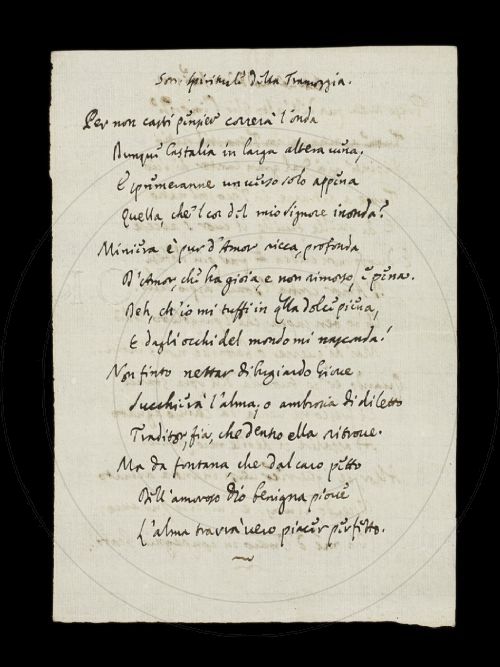 Son. Spirituale della Tramoggia.
Per non casti pensier correrà l'onda
Dunque Castalia in larga altera vena,
E spumeranne un verso solo appena
Quella, che 'l cor del mio Signore inonda?
Miniera è pur d'Amor ricca, profonda
D'Amor, che ha gioia, e non rimorso, e pena.
Deh, ch'io mi tuffi in qlla dolce piena,
E dagli occhi del mondo mi nasconda!
Non finto nettar di bugiardo Giove
Succhierà l'alma, o ambrosia di diletto
Traditor, fia, che dentro ella ritrove.
Ma da fontana, che dal caro petto
Dell'amoroso Dio benigna piove
L'alma trarrà vero piacer perfetto.